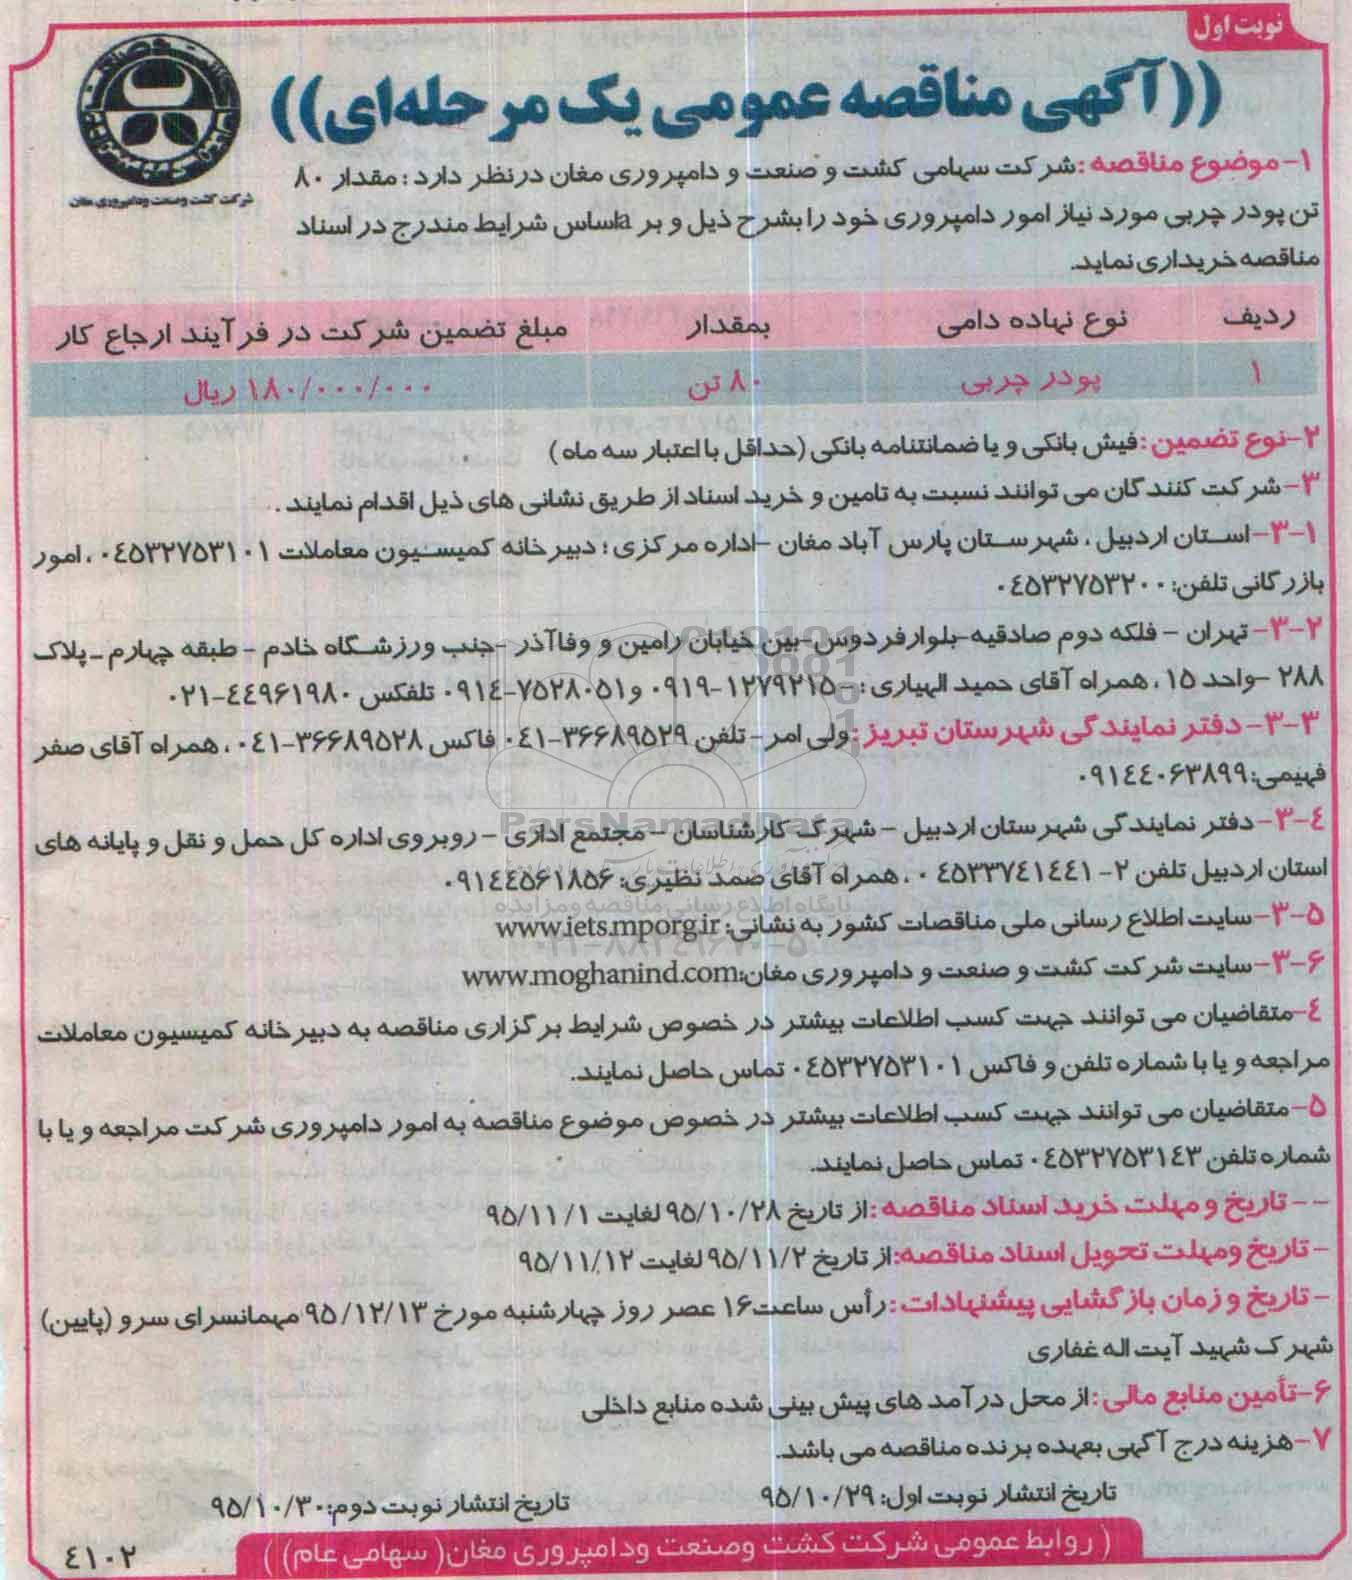 نوبت اول
((آگهی مناقصه عمومی یک مرحله‌ای))
شرکت کشت وصنعت ودامپروری مغان
۱- موضوع مناقصه : شرکت سهامی کشت و صنعت و دامپروری مغان درنظر دارد : مقدار ۸۰
تن پودر چربی مورد نیاز امور دامپروری خود را بشرح ذیل و بر اساس شرایط مندرج در اسناد
مناقصه خریداری نماید.
ردیف نوع نهاده دامی بمقدار مبلغ تضمین شرکت در فرآیند ارجاع کار
۱ پودر چربی ۸۰ تن ۱۸۰/۰۰۰/۰۰۰ ریال
۲-نوع تضمین : فیش بانکی و یا ضمانتنامه بانکی (حداقل با اعتبار سه ماه )
۳-شرکت کنندگان می توانند نسبت به تامین و خرید اسناد از طریق نشانی های ذیل اقدام نمایند .
۳-۱-استان اردبیل ، شهرستان پارس آباد مغان -اداره مرکزی ؛ دبیرخانه کمیسیون معاملات ۰۴۵۳۲۷۵۳۱۰۱ ، امور
بازرگانی تلفن: ۰۴۵۳۲۷۵۳۲۰۰
۳-۲- تهران - فلکه دوم صادقیه-بلوارفردوس-بین خیابان رامین و وفاآذر -جنب ورزشگاه خادم - طبقه چهارم -پلاک
۲۸۸ -واحد ۱۵ ، همراه آقای حمید الهیاری : ۰۹۱۹-۱۲۷۹۲۱۵ و ۰۹۱۴-۷۵۲۸۰۵۱ تلفکس ۰۲۱-۴۴۹۶۱۹۸۰
۳-۳- دفتر نمایندگی شهرستان تبریز : ولی امر - تلفن ۰۴۱-۳۶۶۸۹۵۲۹ فاکس ۰۴۱-۳۶۶۸۹۵۲۸ ، همراه آقای صفر
فهیمی: ۰۹۱۴۴۰۶۳۸۹۹
۳-۴- دفتر نمایندگی شهرستان اردبیل - شهرک کارشناسان - مجتمع اداری - روبروی اداره کل حمل و نقل و پایانه های
استان اردبیل تلفن ۲- ۰۴۵۳۳۷۴۱۴۴۱ ، همراه آقای صمد نظیری: ۰۹۱۴۴۵۶۱۸۵۶
۳-۵-سایت اطلاع رسانی ملی مناقصات کشور به نشانی: www.iets.mporg.ir
۳-۶-سایت شرکت کشت و صنعت و دامپروری مغان: www.moghanind.com
۴-متقاضیان می توانند جهت کسب اطلاعات بیشتر در خصوص شرایط برگزاری مناقصه به دبیرخانه کمیسیون معاملات
مراجعه و یا با شماره تلفن و فاکس ۰۴۵۳۲۷۵۳۱۰۱ تماس حاصل نمایند.
۵-متقاضیان می توانند جهت کسب اطلاعات بیشتر در خصوص موضوع مناقصه به امور دامپروری شرکت مراجعه و یا با
شماره تلفن ۰۴۵۳۲۷۵۳۱۴۳ تماس حاصل نمایند.
- - تاریخ و مهلت خرید اسناد مناقصه : از تاریخ ۹۵/۱۰/۲۸ لغایت ۹۵/۱۱/۱
- تاریخ ومهلت تحویل اسناد مناقصه: از تاریخ ۹۵/۱۱/۲ لغایت ۹۵/۱۱/۱۲
- تاریخ و زمان بازگشایی پیشنهادات : رأس ساعت ۱۶ عصر روز چهارشنبه مورخ ۹۵/۱۲/۱۳ مهمانسرای سرو (پایین)
شهرک شهید آیت اله غفاری
۶-تأمین منابع مالی : از محل درآمد های پیش بینی شده منابع داخلی
۷-هزینه درج آگهی بعهده برنده مناقصه می باشد.
تاریخ انتشار نوبت اول: ۹۵/۱۰/۲۹ تاریخ انتشار نوبت دوم: ۹۵/۱۰/۳۰
( روابط عمومی شرکت کشت وصنعت ودامپروری مغان( سهامی عام) )
۴۱۰۲
ParsNamadData
پایگاه اطلاع رسانی مناقصه و مزایده
۰۲۱-۸۸۳۴۹۶۷۰-۵